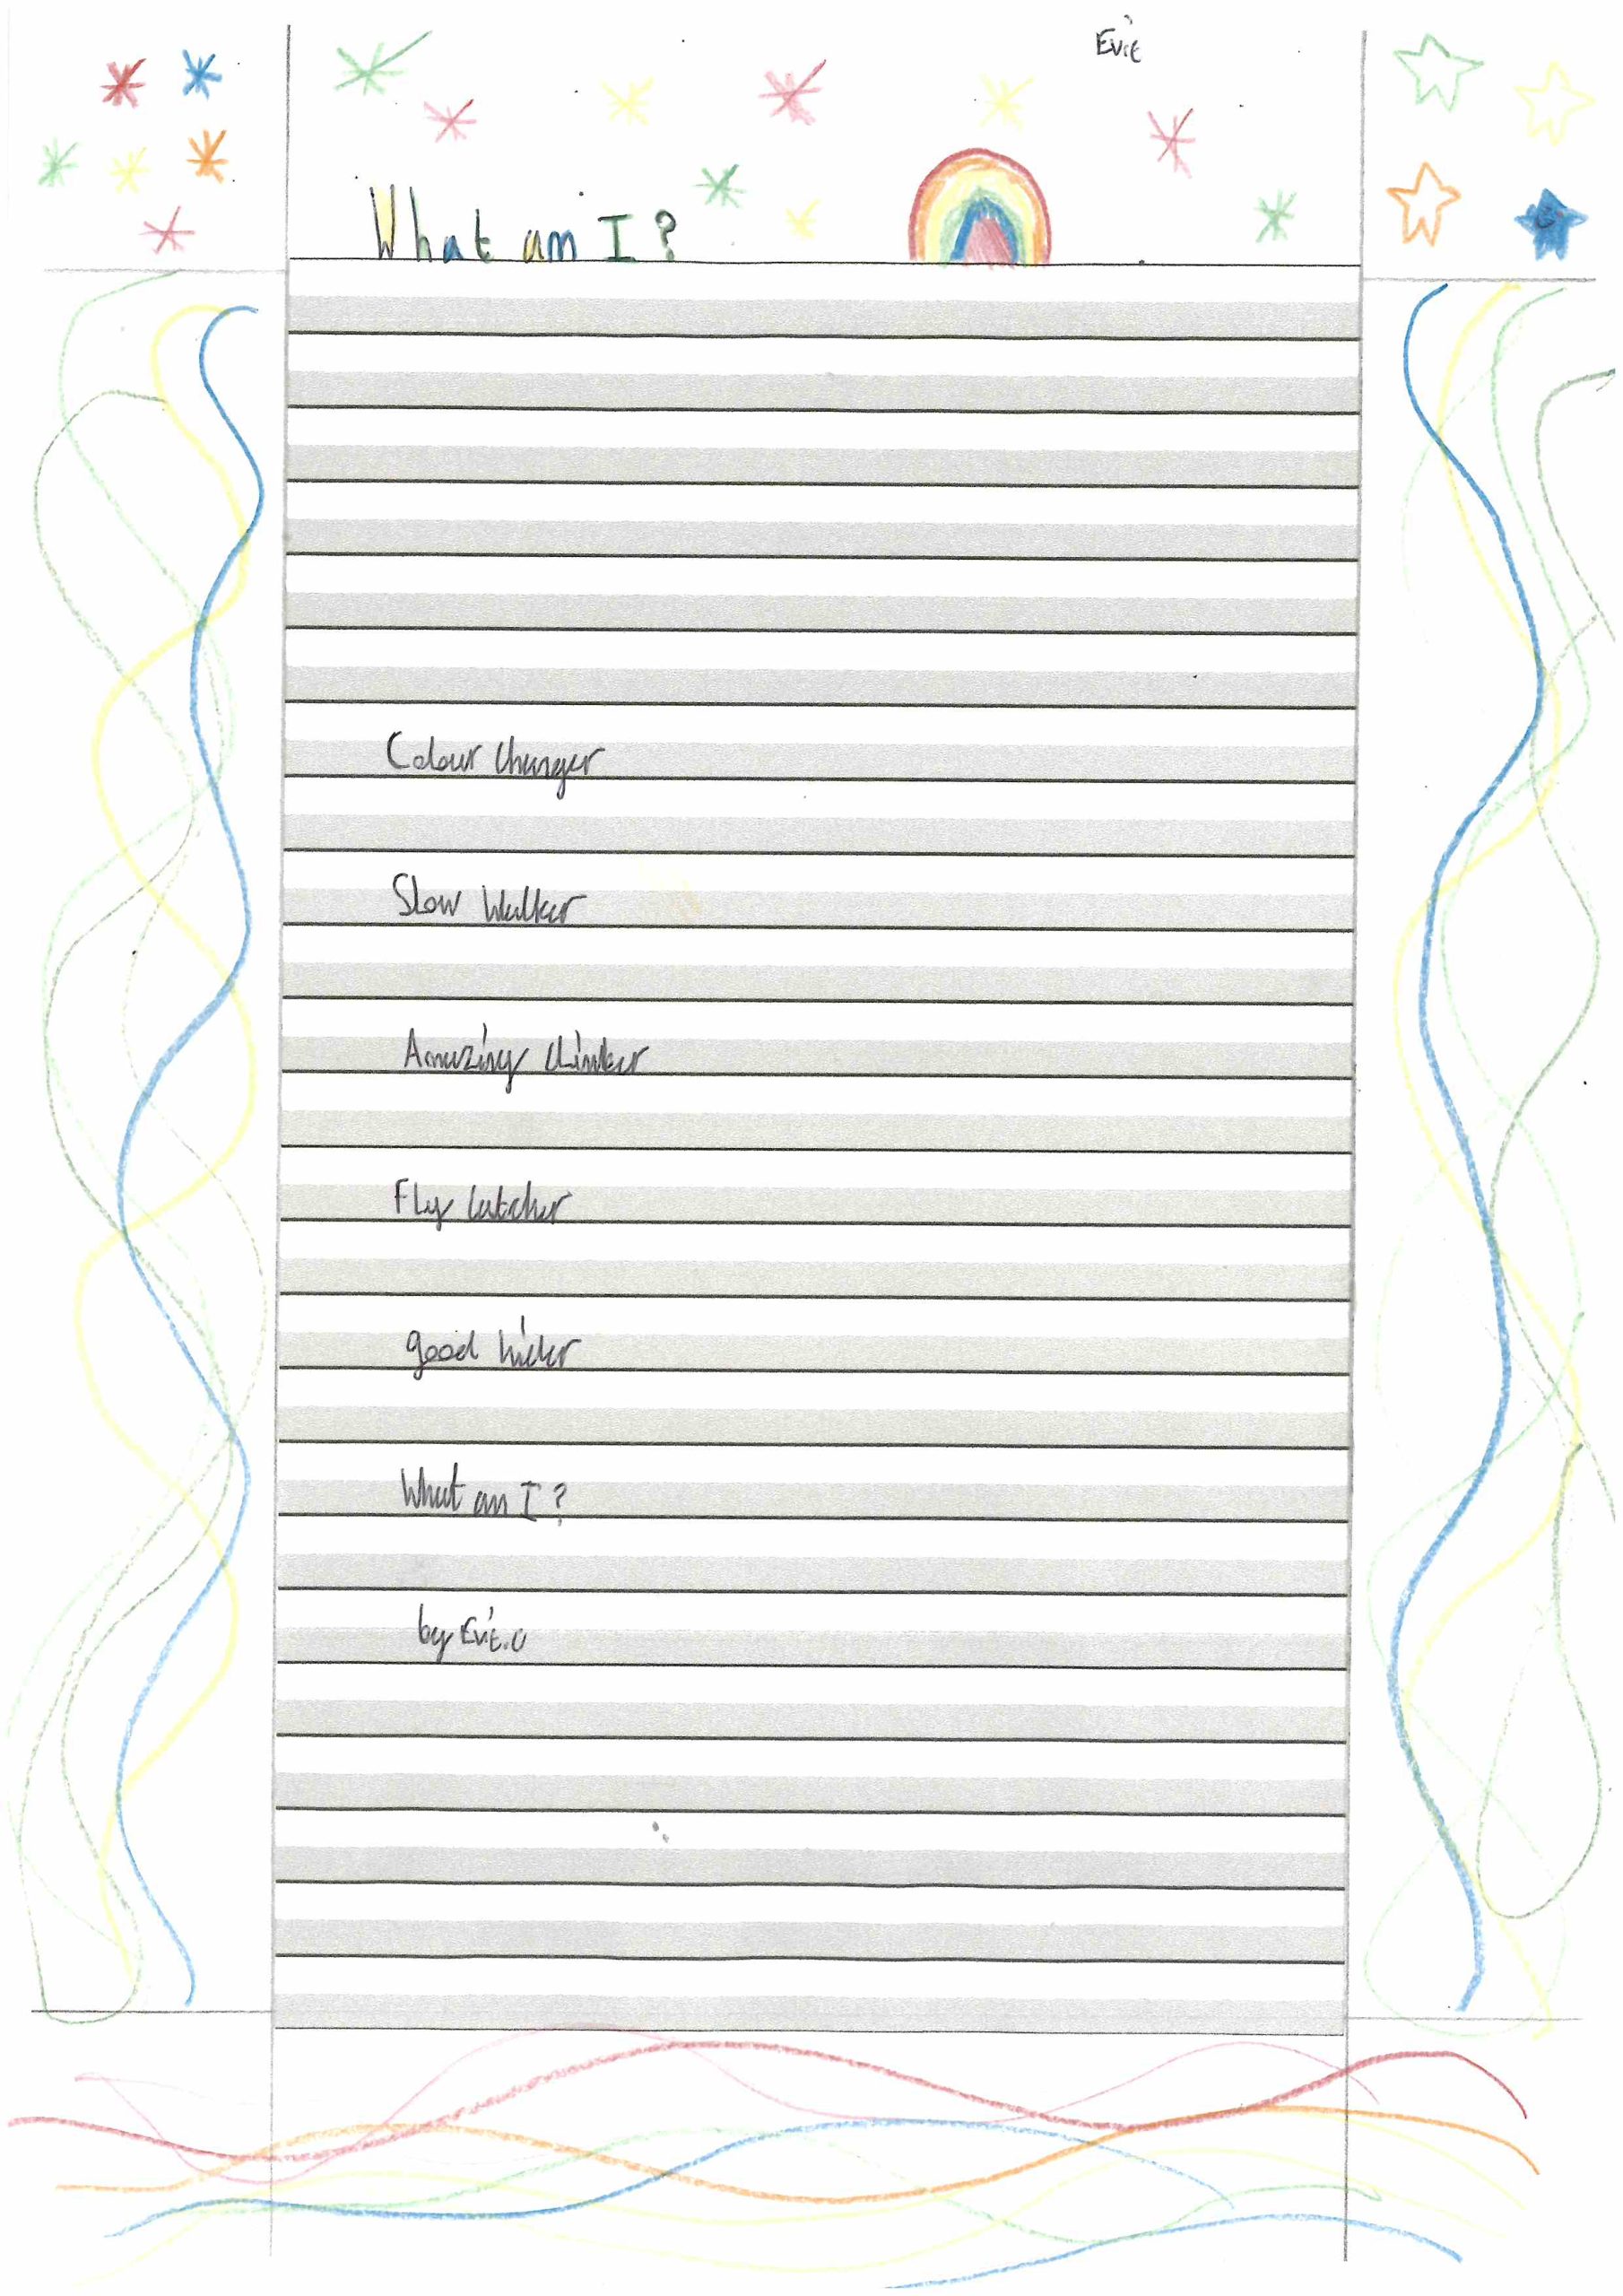 Evie
What am I?
Colour changer
Slow Walker
Amazing thinker
Fly catcher
good hider
What am I?
by Evie.O